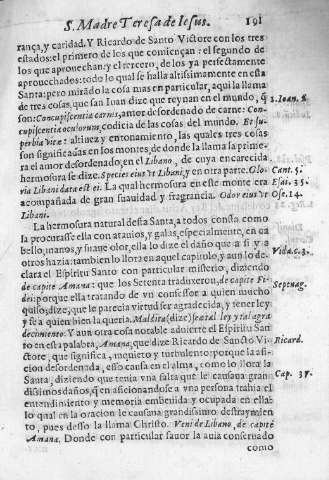 S. Madre Teresa de Iesus. 191
rança, y caridad. Y Ricardo de Santo Victore con los tres
estados: el primero de los que comiençan: el segundo de
los que aprouechan: y el tercero, de los ya perfectamente
aprouechados: todo lo qual se halla altissimamente en esta
Santa: pero mirãdo la cosa mas en particular, aqui la llama
de tres cosas, que san Iuan dize que reynan en el mundo, q̃
son: Concupiscentia carnis, amor desordenado de carne: Con- 1. Ioan. 2.
cupiscentia oculorum, codicia de las cosas del mundo. Et su-
perbia vitæ: altiuez y entonamiento, las quales tres cosas
son significadas en los montes, de donde la llama la prime-
ra el amor desordenado, en el Libano, de cuya encarecida
hermosura se dize. Species eius vt Libani, y en otra parte. Glo- Cant. 5.
ria Libani data est ei. La qual hermosura en este monte era Esai. 35.
acompañada de gran suauidad y fragrancia. Odor eius vt Ose. 14.
Libani.
La hermosura natural desta Santa, a todos consta como
la procurasse ella con atauios, y galas, especialmente, en ca
bello, manos, y suaue olor, ella lo dize el daño que a si y a
otros hazia: tambien lo llora en aquel capitulo, y aun lo de- Vida. c. 3.
clara el Espiritu Santo con particular misterio, diziendo
de capite Amana: que los Setenta traduxeron, de capite Fi- Septuag.
dei: porque ella tratando de vn confessor a quien mucho
quiso, dize, que le parecia virtud ser agradecida, y tener ley
y fe a quien bien la queria. Maldita (dize) sea tal ley y tal agra
decimiento. Y aun otra cosa notable aduierte el Espiritu San
to en esta palabra, Amana, que dize Ricardo de Sancto Vi- Ricard.
ctore, que significa, inquieto y turbulento: porque la afi-
cion desordenada, esso causa en el alma, como lo llora la
Santa, diziendo que tenia vna falta que le causaua gran- Cap. 37.
dissimos daños, q̃ en aficionandose a vna persona trahia el
entendimiento y memoria embeuida y ocupada en ella:
lo qual en la oracion le causaua grandissimo destruymien-
to, pues desso la llama Christo. Veni de Libano, de capite
Amana. Donde con particular fauor la auia conseruado
como